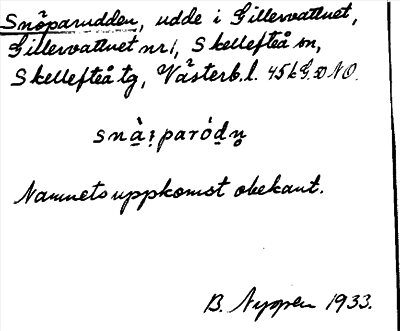 Snöparudden, udde i Gillervattnet,
Gillervattnet nr 1, Skellefteå sn,
Skellefteå tg, Västerb. l. 45 k G. D NO.
snạ̀ịparódṇ
Namnets uppkomst obekant.
B. Nyppen 1933.